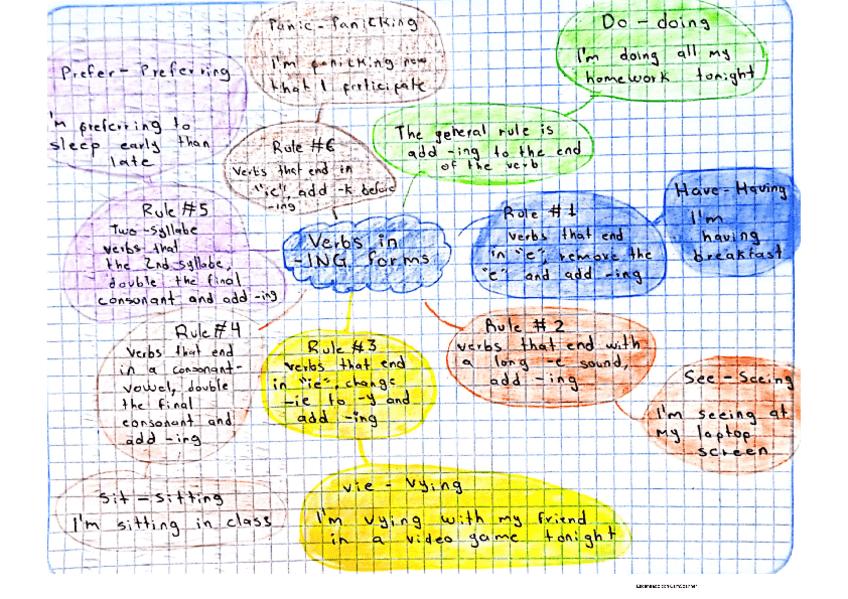 Panic - Panicking
I'm panicking now
that I participate
Do - doing
I'm doing all my
homework tonight
Prefer - Preferring
I'm preferring to
sleep early than
late
Rule #6
Verbs that end in
"ic", add -k before
-ing
The general rule is
add -ing to the end
of the verb
Have - Having
I'm
having
breakfast
Rule #5
Two-syllabe
verbs that
the 2nd syllabe,
double the final
consonant and add -ing
Verbs in
-ING forms
Rule #1
verbs that end
in "e", remove the
"e" and add -ing
Rule #4
Verbs that end
in a consonant-
vowel, double
the final
consonant and
add -ing
Rule #3
verbs that end
in "ie", change
-ie to -y and
add -ing
Rule #2
verbs that end with
a long -e sound,
add -ing
See - Seeing
I'm seeing at
my laptop
screen
Sit - sitting
I'm sitting in class
vie - vying
I'm vying with my friend
in a video game tonight